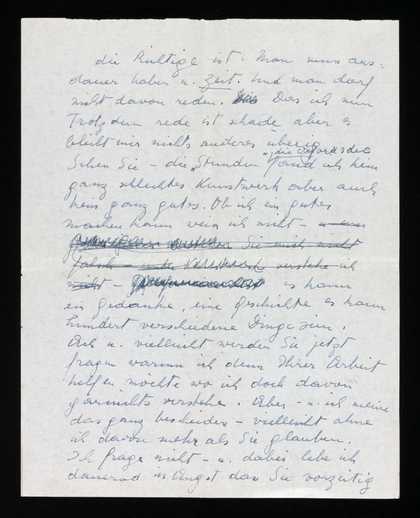 die Richtige ist. Man muss aus-
dauer haben u. Zeit. Und man darf
nicht davon reden. Das ich nun
Trotzdem rede ist schade aber es
bleibt mir nichts anderes übrig
Sehen Sie – die "Stunden" fand ich kein
ganz schlechtes Kunstwerk aber auch
kein ganz gutes. Ob ich ein gutes
machen kann weis ich nicht –
Sie mich nicht
falsch verstehe ich
nicht – es kann
ein gedanke, eine geschichte es kann
hundert verschiedene Dinge sein.
Ach u. vielleicht werden Sie jetzt
fragen warum ich denn Ihrer Arbeit
helfen möchte wo ich doch davon
garnichts verstehe. Aber – u. ich meine
das ganz bescheiden – vielleicht ahne
ich davon mehr als Sie glauben.
Ich frage nicht – u. dabei lebe ich
dauernd in Angst das Sie vorzeitig